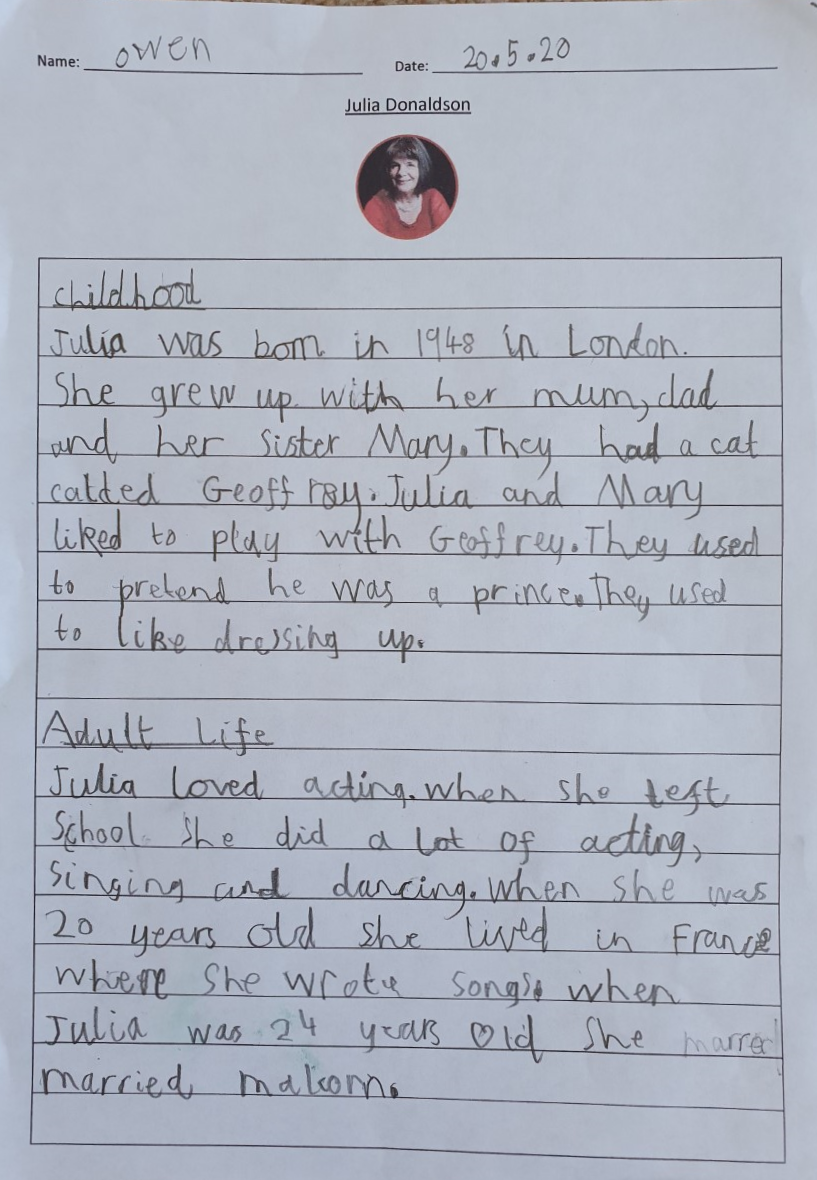 Name: owen Date: 20.5.20
Julia Donaldson
childhood
Julia was born in 1948 in London.
She grew up with her mum, dad
and her sister Mary. They had a cat
catted Geoffrey. Julia and Mary
liked to play with Geoffrey. They used
to pretend he was a prince. They used
to like dressing up.
Adult Life
Julia loved acting. when she left
School she did a lot of acting,
singing and dancing. when she was
20 years old she lived in France
where she wrote songs. when
Julia was 24 years old she marred
married malcom.